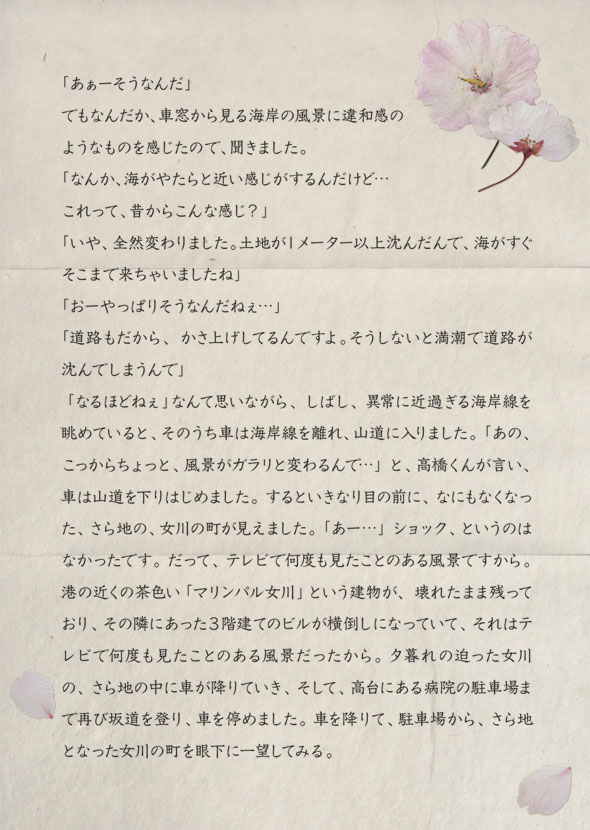 「あぁーそうなんだ」
でもなんだか、車窓から見る海岸の風景に違和感の
ようなものを感じたので、聞きました。
「なんか、海がやたらと近い感じがするんだけど…
これって、昔からこんな感じ？」
「いや、全然変わりました。土地が1メーター以上沈んだんで、海がすぐ
そこまで来ちゃいましたね」
「おーやっぱりそうなんだねぇ…」
「道路もだから、かさ上げしてるんですよ。そうしないと満潮で道路が
沈んでしまうんで」
「なるほどねぇ」なんて思いながら、しばし、異常に近過ぎる海岸線を
眺めていると、そのうち車は海岸線を離れ、山道に入りました。「あの、
こっからちょっと、風景がガラリと変わるんで…」と、高橋くんが言い、
車は山道を下りはじめました。するといきなり目の前に、なにもなくなっ
た、さら地の、女川の町が見えました。「あー…」ショック、というのは
なかったです。だって、テレビで何度も見たことのある風景ですから。
港の近くの茶色い「マリンパル女川」という建物が、壊れたまま残って
おり、その隣にあった3階建てのビルが横倒しになっていて、それはテ
レビで何度も見たことのある風景だったから。夕暮れの迫った女川
の、さら地の中に車が降りていき、そして、高台にある病院の駐車場ま
で再び坂道を登り、車を停めました。車を降りて、駐車場から、さら地
となった女川の町を眼下に一望してみる。